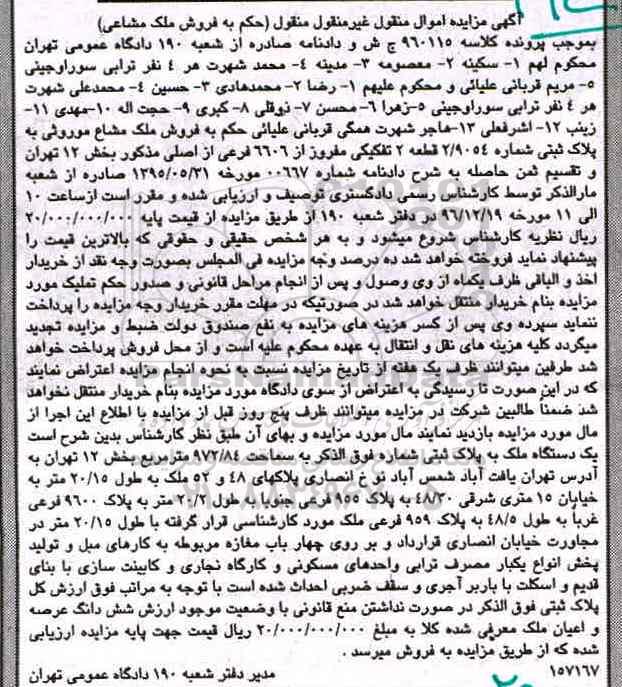 آگهی مزایده اموال منقول غیرمنقول منقول (حکم به فروش ملک مشاعی)
بموجب پرونده کلاسه ۹۶۰۱۱۵ ج ش و دادنامه صادره از شعبه ۱۹۰ دادگاه عمومی تهران
محکوم لهم ۱- سکینه ۲- معصومه ۳- مدینه ٤- محمد شهرت هر ٤ نفر ترابی سوراوجینی
۵- مریم قربانی علیائی و محکوم علیهم ۱- رضا ۲- محمدهادی ۳- حسین ٤- محمدعلی شهرت
هر ٤ نفر ترابی سوراوجینی ۵-زهرا ٦- محسن ۷- ذوقلی ۸- کبری ۹- حجت اله ۱۰-مهدی ۱۱-
زینب ۱۲- اشرفعلی ۱۳-هاجر شهرت همگی قربانی علیائی حکم به فروش ملک مشاع موروثی به
پلاک ثبتی شماره ۲/۹۰۵٤ قطعه ۲ تفکیکی مفروز از ٦٦۰٦ فرعی از اصلی مذکور بخش ۱۲ تهران
و تقسیم ثمن حاصله به شرح دادنامه شماره ۰۰٦٦۷ مورخه ۱۳۹۵/۰۵/۳۱ صادره از شعبه
مارالذکر توسط کارشناس رسمی دادگستری توصیف و ارزیابی شده و مقرر است ازساعت ۱۰
الی ۱۱ مورخه ۹٦/۱۲/۱۹ در دفتر شعبه ۱۹۰ از طریق مزایده از قیمت پایه ۲۰/۰۰۰/۰۰۰/۰۰۰
ریال نظریه کارشناس شروع میشود و به هر شخص حقیقی و حقوقی که بالاترین قیمت را
پیشنهاد نماید فروخته خواهد شد ده درصد وجه مزایده فی المجلس بصورت وجه نقد از خریدار
اخذ و الباقی ظرف یکماه از وی وصول و پس از انجام مراحل قانونی و صدور حکم تملیک مورد
مزایده بنام خریدار منتقل خواهد شد در صورتیکه در مهلت مقرر خریدار وجه مزایده را پرداخت
ننماید سپرده وی پس از کسر هزینه های مزایده به نفع صندوق دولت ضبط و مزایده تجدید
میگردد کلیه هزینه های نقل و انتقال به عهده محکوم علیه است و از محل فروش پرداخت خواهد
شد طرفین میتوانند ظرف یک هفته از تاریخ مزایده نسبت به نحوه انجام مزایده اعتراض نمایند
که در این صورت تا رسیدگی به اعتراض از سوی دادگاه مورد مزایده بنام خریدار منتقل نخواهد
شد ضمناً طالبین شرکت در مزایده میتوانند ظرف پنج روز قبل از مزایده با اطلاع این اجرا از
مال مورد مزایده بازدید نمایند مال مورد مزایده و بهای آن طبق نظر کارشناس بدین شرح است
یک دستگاه ملک به پلاک ثبتی شماره فوق الذکر به مساحت ۹۷۲/۸٤ مترمربع بخش ۱۲ تهران به
آدرس تهران یافت آباد شمس آباد نو خ انصاری پلاکهای ٤۸ و ۵۲ ملک به طول ۲۰/۱۵ متر به
خیابان ۱۵ متری شرقی ٤۸/۳۰ به پلاک ۹۵۵ فرعی جنوبا به طول ۲۰/۲ متر به پلاک ۹٦۰۰ فرعی
غرباً به طول ٤۸/۵ به پلاک ۹۵۹ فرعی ملک مورد کارشناسی قرار گرفته با طول ۲۰/۱۵ متر در
مجاورت خیابان انصاری قرارداد و بر روی چهار باب مغازه مربوطه به کارهای مبل و تولید
پخش انواع یکبار مصرف ترابی واحدهای مسکونی و کارگاه نجاری و کابینت سازی با بنای
قدیم و اسکلت با باربر آجری و سقف ضربی احداث شده است با توجه به مراتب فوق ارزش کل
پلاک ثبتی فوق الذکر در صورت نداشتن منع قانونی با وضعیت موجود ارزش شش دانگ عرصه
و اعیان ملک معرفی شده کلا به مبلغ ۲۰/۰۰۰/۰۰۰/۰۰۰ ریال قیمت جهت پایه مزایده ارزیابی
شده که از طریق مزایده به فروش میرسد .
۱۵۷۱٦۷ مدیر دفتر شعبه ۱۹۰ دادگاه عمومی تهران